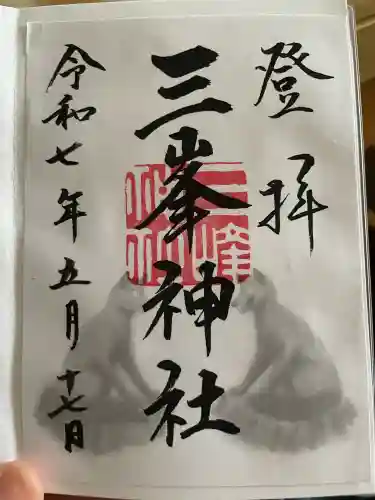 登拝
三峯神社
令和七年五月十七日